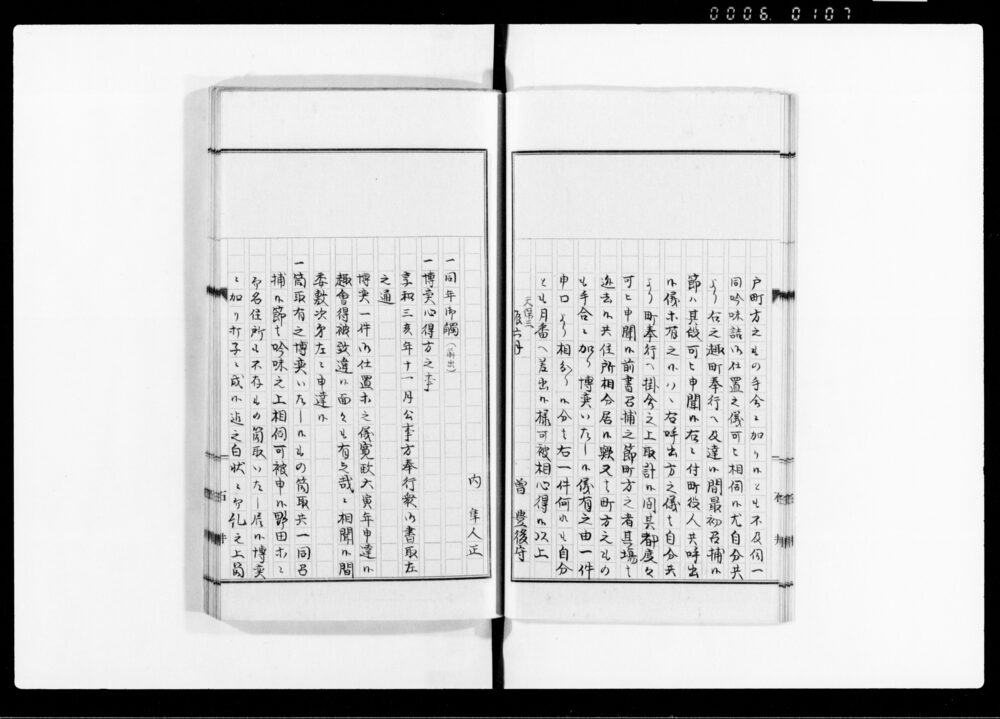 0006 0107
戸町方之もの手合ニ加りハとも不及伺一
同吟味詰御仕置之儀可と相伺ハ尤自分共
より右之趣町奉行へ及達ハ間最初召捕ハ
節ハ其段可と申聞ハ右ニ付町役人共呼出
ハ儀ホ有之ハハヽ右呼出方之儀も自分共
より町奉行へ掛合之上取計ハ間其都度々
可と申聞ハ前書召捕之節町方之者其場も
逃去ハ共住所相分居ハ歟又も町方之もの
も手合ニ加り博奕いたしハ儀有之由一件
申口より相分りハ分も右一件何れも自分
とも月番へ差出ハ様可被相心得ハ以上
天保三
辰六月
曽 豊後守
内 隼人正
一同年御觸(前出)
一博奕心得方之事
享和三亥年十一月公事方奉行衆御書取左
之通
博奕一件御仕置ホ之儀寛政六寅年申達ハ
趣會得被致違ハ面々も有之哉ニ相聞ハ間
委敷次第左ニ申達ハ
一筒取有之博奕いたしハもの筒取共一同召
捕ハ節も吟味之上相伺可被申ハ野田ホニ
而名住所も不存もの筒取いたし居ハ博奕
ニ加り打子ニ成ハ迄之白状ニ而乱之上筒